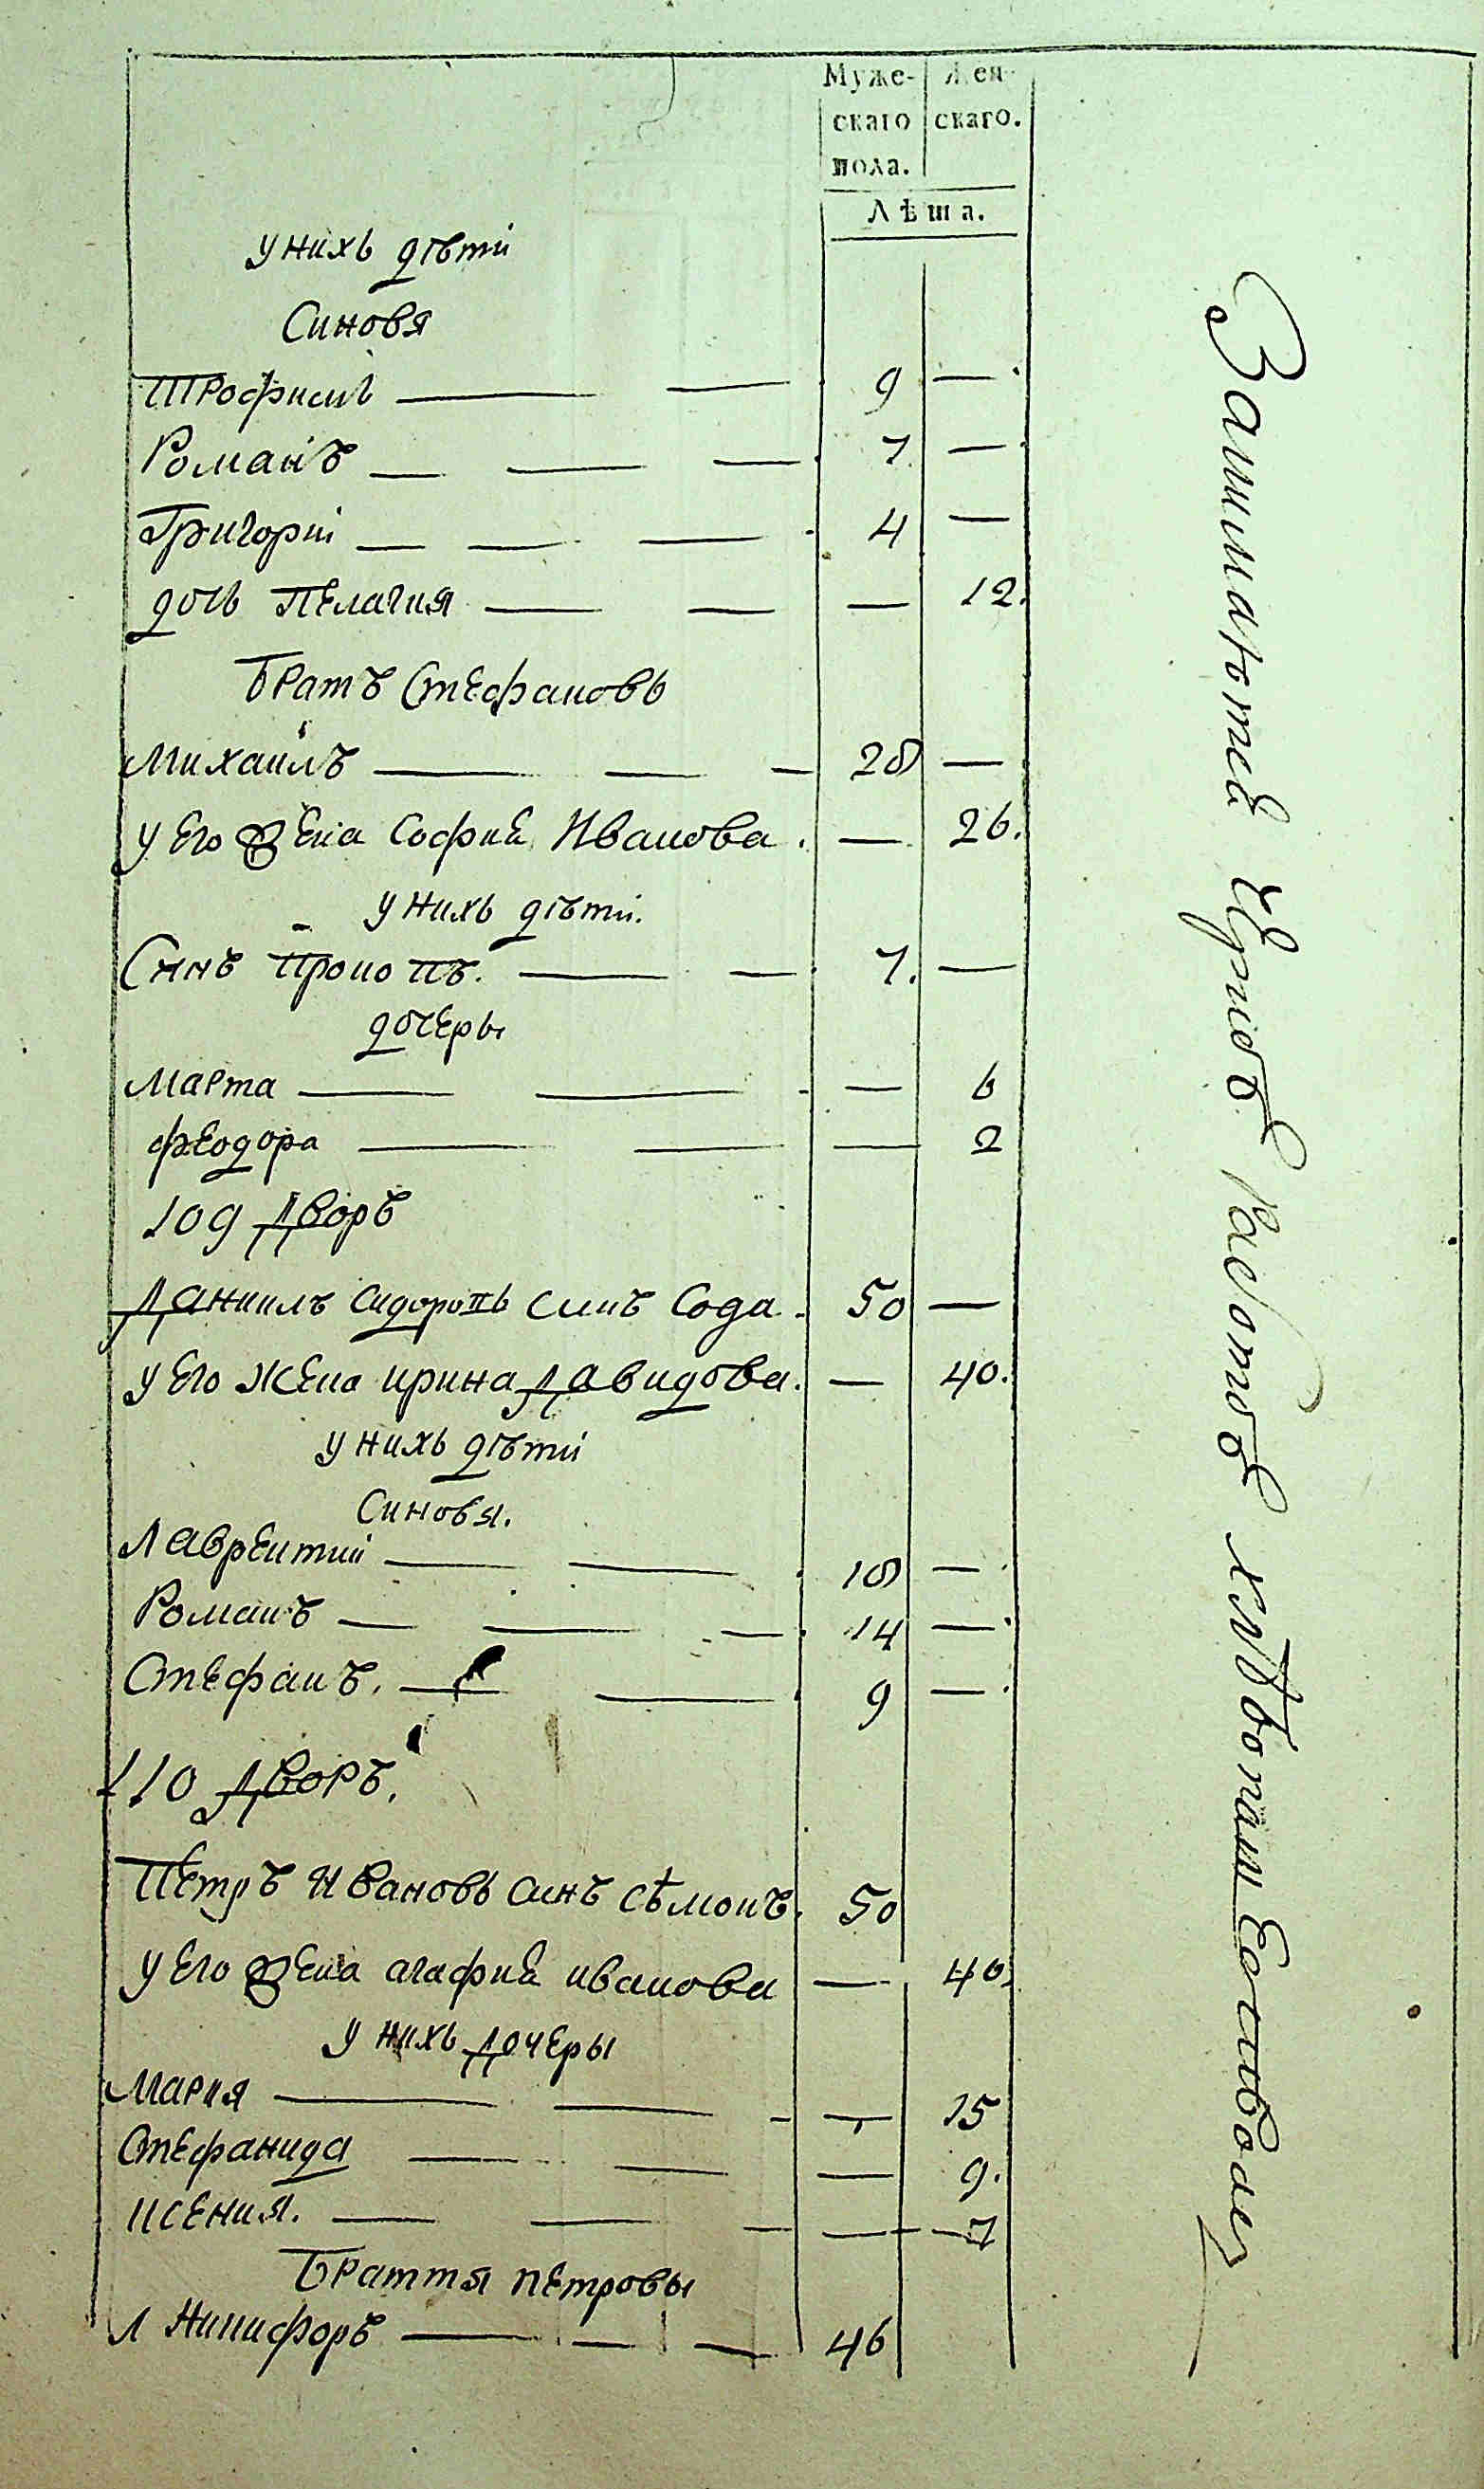 Муже- Жен-
скаго скаго.
пола.
Лѣта.
у нихъ дѣти
Синовя
Трофимъ 9 —
Романъ 7. —
Григорій 4 —
дочь Пелагия — 12.
Братъ Стефановъ
Михаилъ 28 —
у Его жена Софиѣ Иванова. — 26.
у нихъ дѣти.
Синъ Прокопъ. 7. —
дочеры
Марта — 6
Феодора — 2
109 Дворъ
Даниилъ Сидоровъ синъ Сода. 50 —
у Его жена Ирина Давидова. — 40.
у нихъ дѣти
Синовя.
Лаврентий 18 —
Романъ 14 —
Стефанъ. 9 —
110 Дворъ.
Петръ Ивановъ синъ Сѣмонъ. 50
у Его жена агафиѣ иванова — 40.
у нихъ Дочеры
Мария — 15
Стефанида — 9.
Ксения. — 7
Браття Петровы
Никифоръ 46